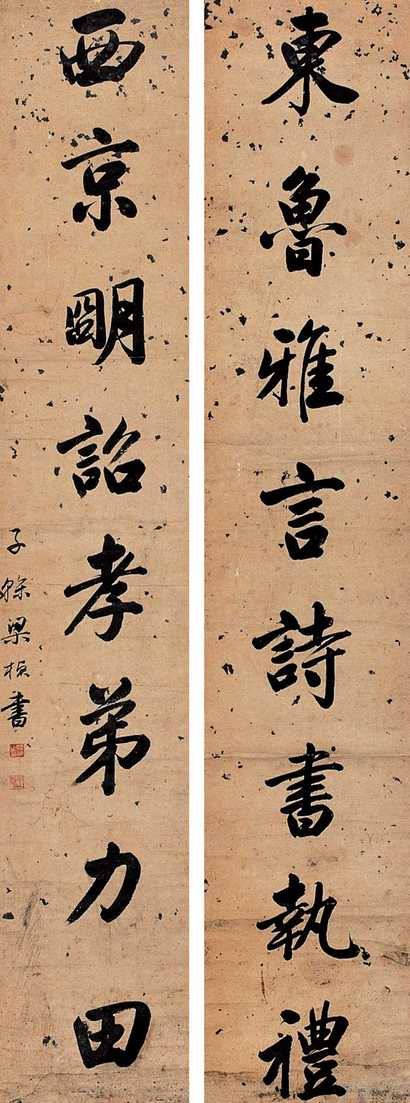 東魯雅言詩書執禮
西京明詔孝弟力田
子 梁 書